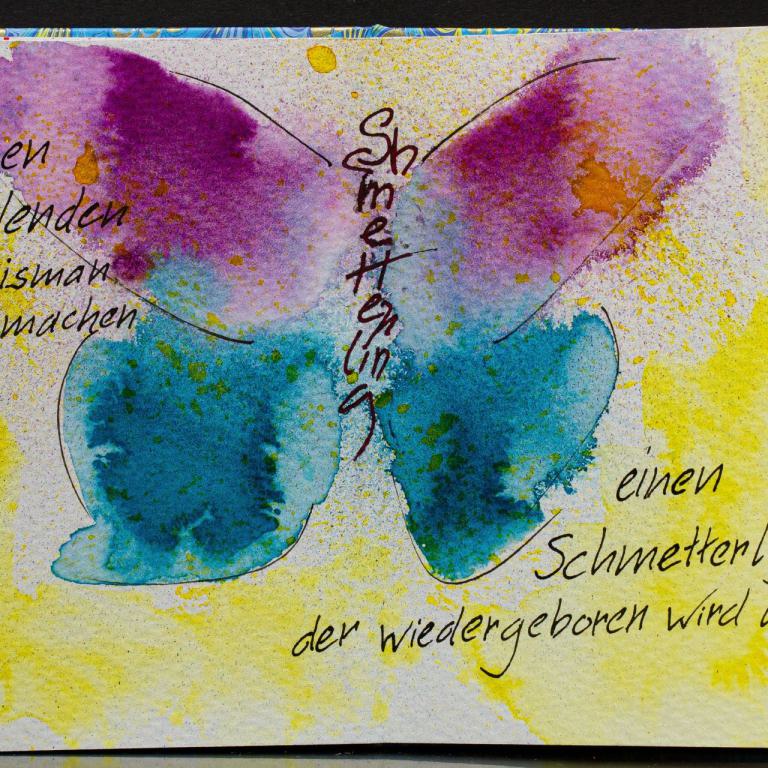 en
lenden
isman
machen
Shmetterling
einen
Schmetterl
der wiedergeboren wird